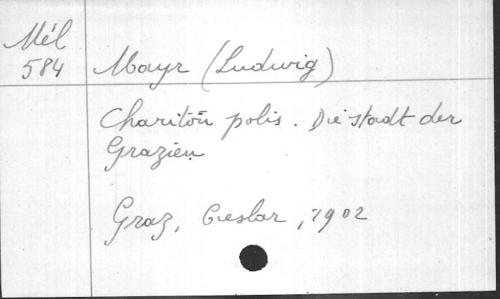 Mél
584
Mayr (Ludwig)
Charitōn polis. Die stadt der
Grazien
Graz, Cieslar, 1902